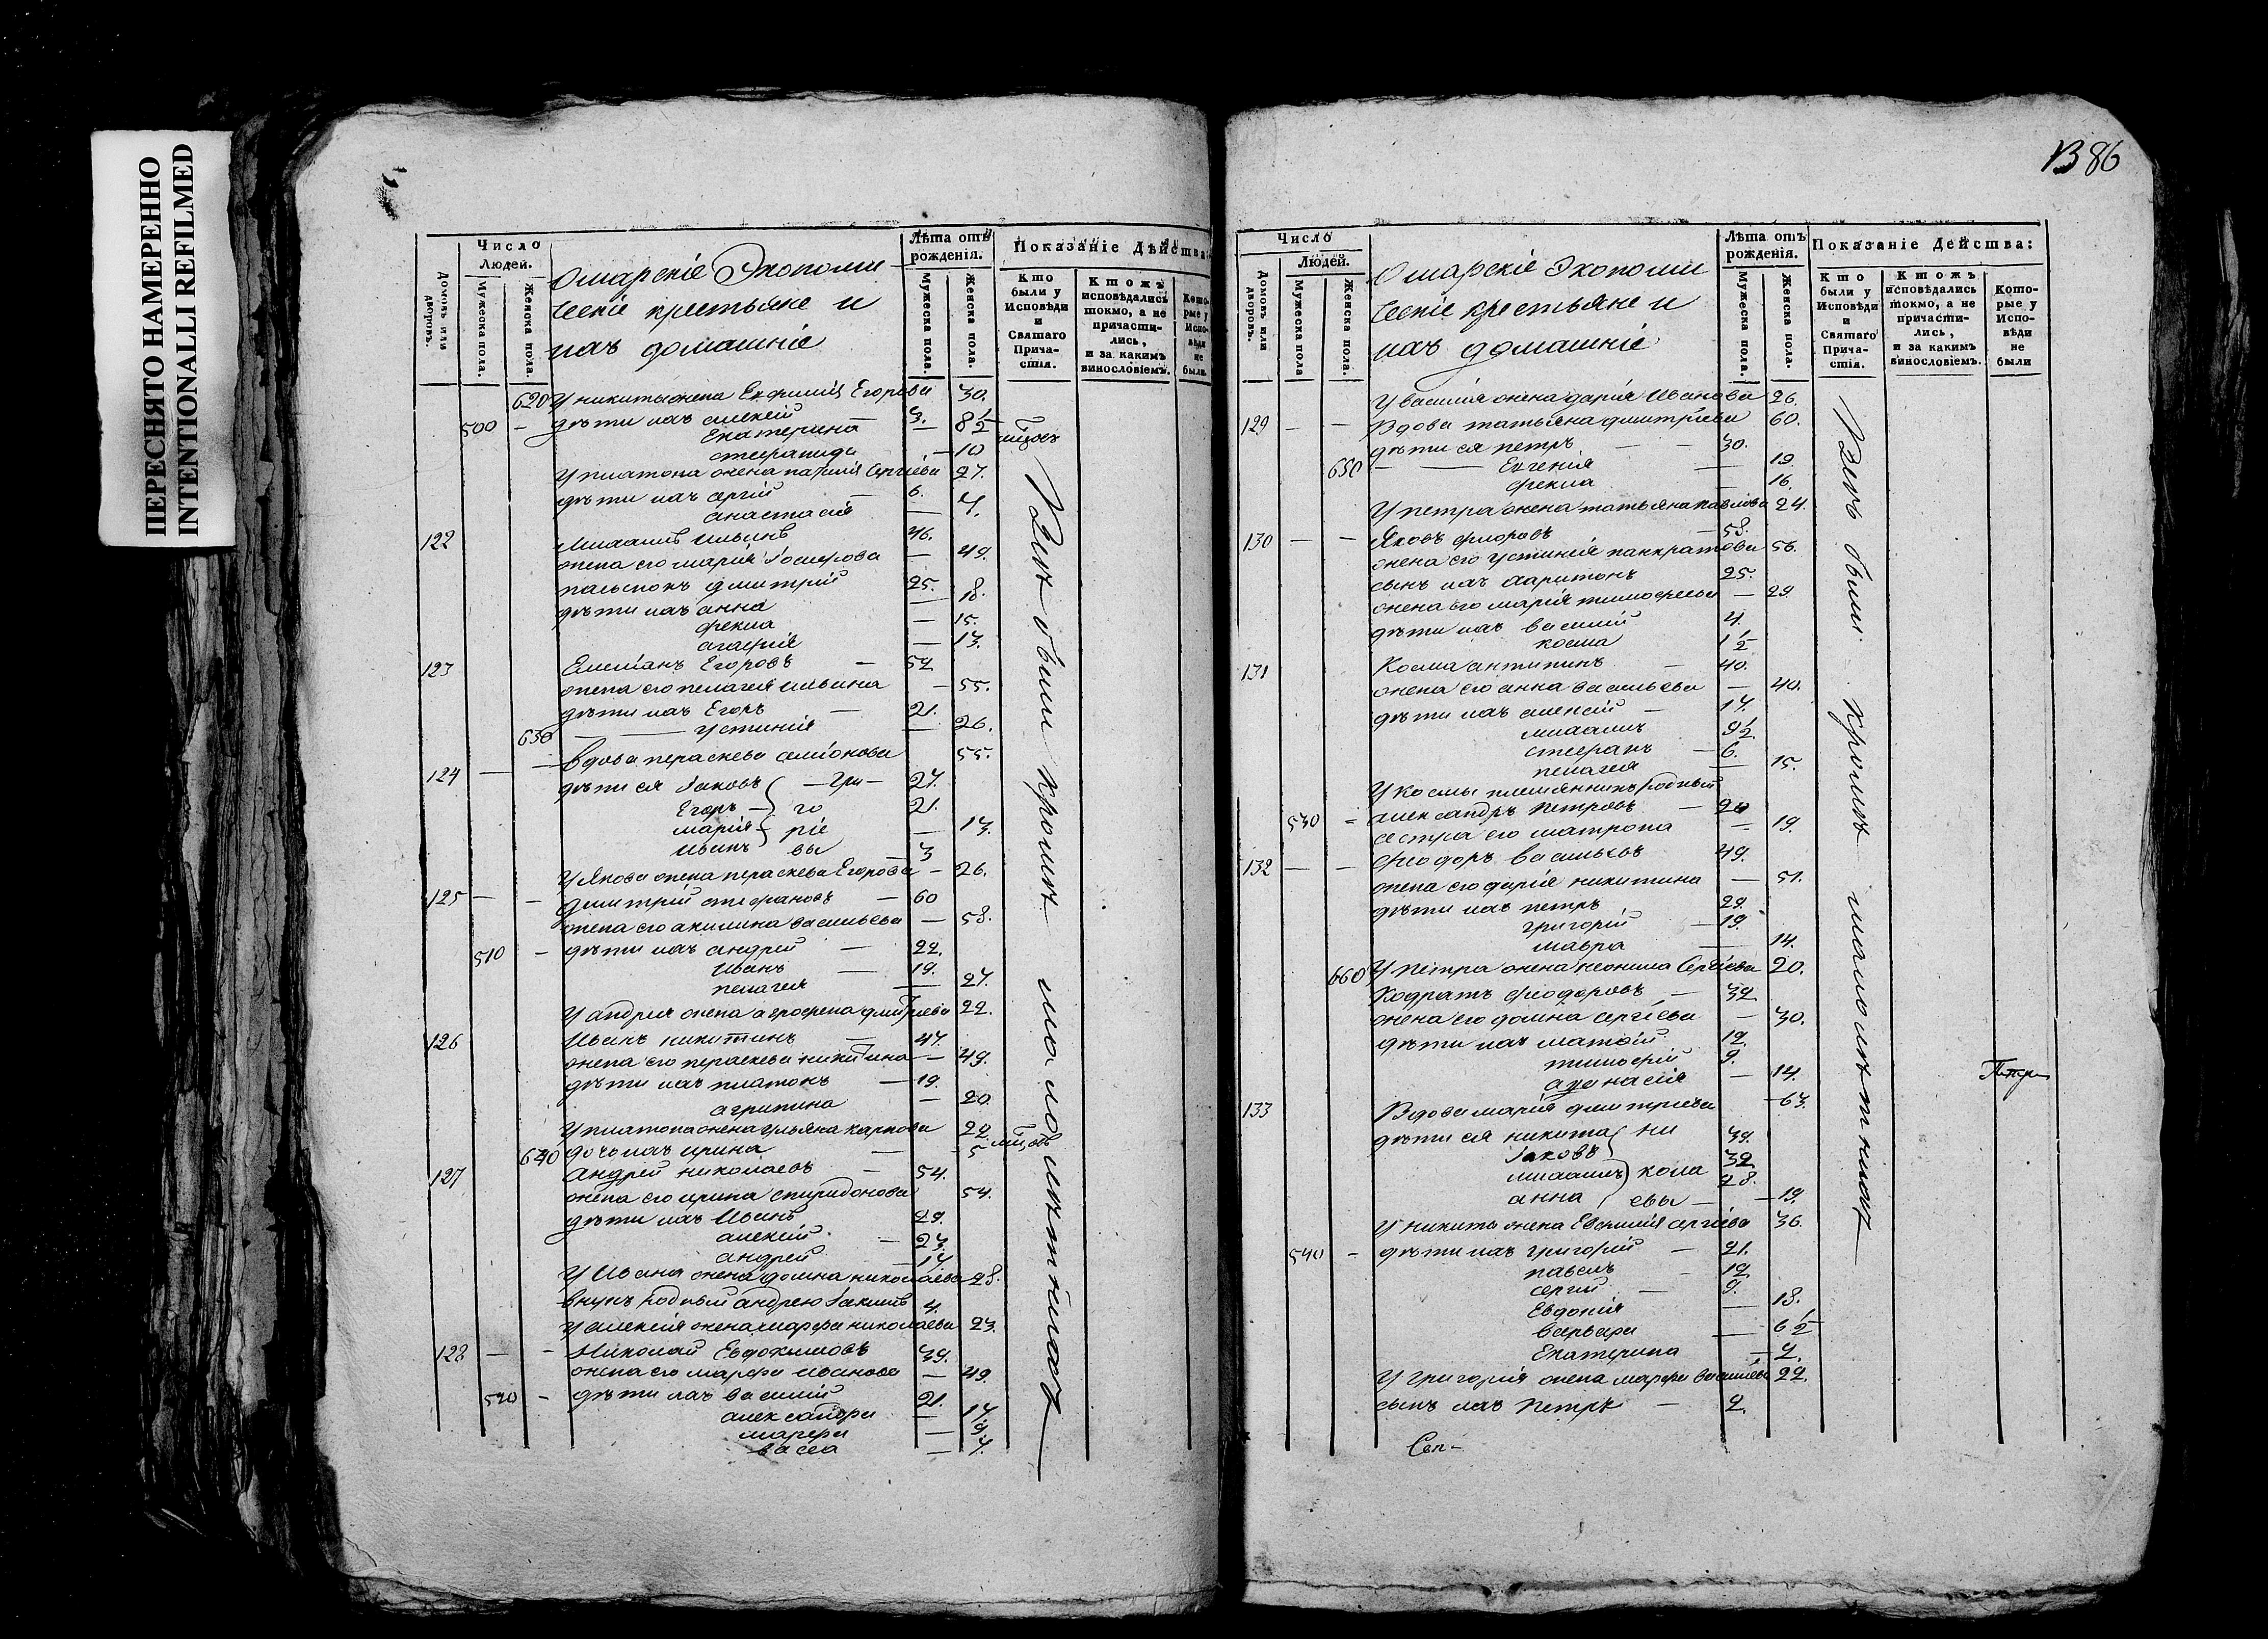 ПЕРЕСНЯТО НАМЕРЕННО
INTENTIONALLI REFILMED
Число
Людей.
Домовъ или дворовъ.
Мужеска пола.
Женска пола.
Омарскіе Экономи-
ческіе крестьяне и
ихъ домашніе
Лѣта отъ
рожденія.
Мужеска пола.
Женска пола.
Показаніе Дѣйства
Кто были у Исповѣди и Святаго Прича-стія.
Ктожъ исповѣдались токмо, а не причасти-лись, и за какимъ винословіемъ.
Кото-рые у Испо-вѣди не были.
620 У никиты жена Евфимія Егорова 30.
500 - дѣти ихъ алексій 3.
Екатерина — 8½
степанида — 10 мцовъ
У платона жена Сергіева 27.
дѣти ихъ сергій 6.
анастасія — 4.
122 Михаилъ Ильинъ 46.
жена его марія Іосифова — 49.
дмитрій 25.
дѣти ихъ анна — 18.
фекла — 15.
агафія — 13.
123 Емеліанъ Егоровъ — 52
жена его пелагея ильина — 55.
дѣти ихъ Егоръ — 21.
630 устинія — 26.
124 — — вдова параскева симіонова 55.
дѣти ея Іаковъ — Гри — 27.
Егоръ — го 21.
марія ріе — 13.
иванъ вы 3
У Якова жена параскева Егорова — 26.
125 — — Димитрій стефановъ — 60
жена его акилина васильева — 58.
510 — дѣти ихъ андрей — 22.
Иванъ — 19.
пелагея — 27.
У андрея жена агрофена дмитріева 22.
126 Иванъ никитинъ — 47.
жена его параскева никитина — 49.
дѣти ихъ платонъ — 19.
агрипина — 20
У платона жена ульяна карпова 22.
640 дочь ихъ ирина — 5 мцовъ
127 Андрей николаевъ — 54.
жена его ирина спиридонова 54.
дѣти ихъ Иванъ 29.
алексій — 23.
андрей — 14
У Ивана жена домна николаева 28.
внукъ родный андрею 4.
У алексія жена марфа николаева 23.
128 — - Николай Евдокимовъ 39.
жена его марфа иванова — 49.
520 - дѣти ихъ василій 21.
александра — 14
марфа — 9.
васса — 4.
Всѣ были кромѣ малолѣтныхъ
86
Число
Людей.
Домовъ или дворовъ.
Мужеска пола
Женска пола.
Омарскіе Экономи
ческіе крестьяне и
ихъ домашніе
Лѣта отъ
рожденія.
Мужеска пола.
Женска пола.
Показаніе Действа:
Кто были у Исповѣди и Святаго Прича-стія.
Ктожъ исповѣдались токмо, а не причасти-лись, и за какимъ винословіемъ.
Кото-рые у Испо-вѣди не были
У василія жена дарія Иванова 26.
129 — — Вдова татьяна димитріева 60.
дѣти ея петръ — — 30.
650 — Евгенія — 19.
фекла — 16.
У петра жена татьяна павлова 24.
130 — — Яковъ флоровъ — 58.
жена его устинія панкратова 56.
сынъ ихъ харитонъ 25.
жена его марія тимофеева — 29
дѣти ихъ василій 4.
косма 1½
131 Косма антипинъ — 40.
жена его анна васильева — 40.
дѣти ихъ алексій — 14.
михаилъ 9½
стефанъ — 6.
пелагея — 15.
У космы племянникъ родный
530 - александръ Петровъ — 20
сестра его матрона — 19.
132 — — Феодоръ васильевъ 49.
жена его дарія никитина — 51.
дѣти ихъ петръ 29.
григорій — 19.
мавра — 14.
660 У петра жена неонила Сергіева 20.
Кодратъ феодоровъ — 32
жена его домна сергіева — 30.
дѣти ихъ матѳій 12.
тимофій 9.
аѳанасія — 14.
133 Вдова марія димитріева — 63.
дѣти ея никита ни 39.
Іаковъ 32
михаилъ кола 28.
анна евы — — 19.
У никиты жена Евфимія сергіева 36.
540 - дѣти ихъ григорій — 21.
павелъ — 12.
сергій — 9.
Евдокія — 18.
варвара — 6½
Екатерина — 2.
У григорія жена марфа васильева 22.
сынъ ихъ Петръ — 2.
Всѣ были кромѣ малолѣтныхъ